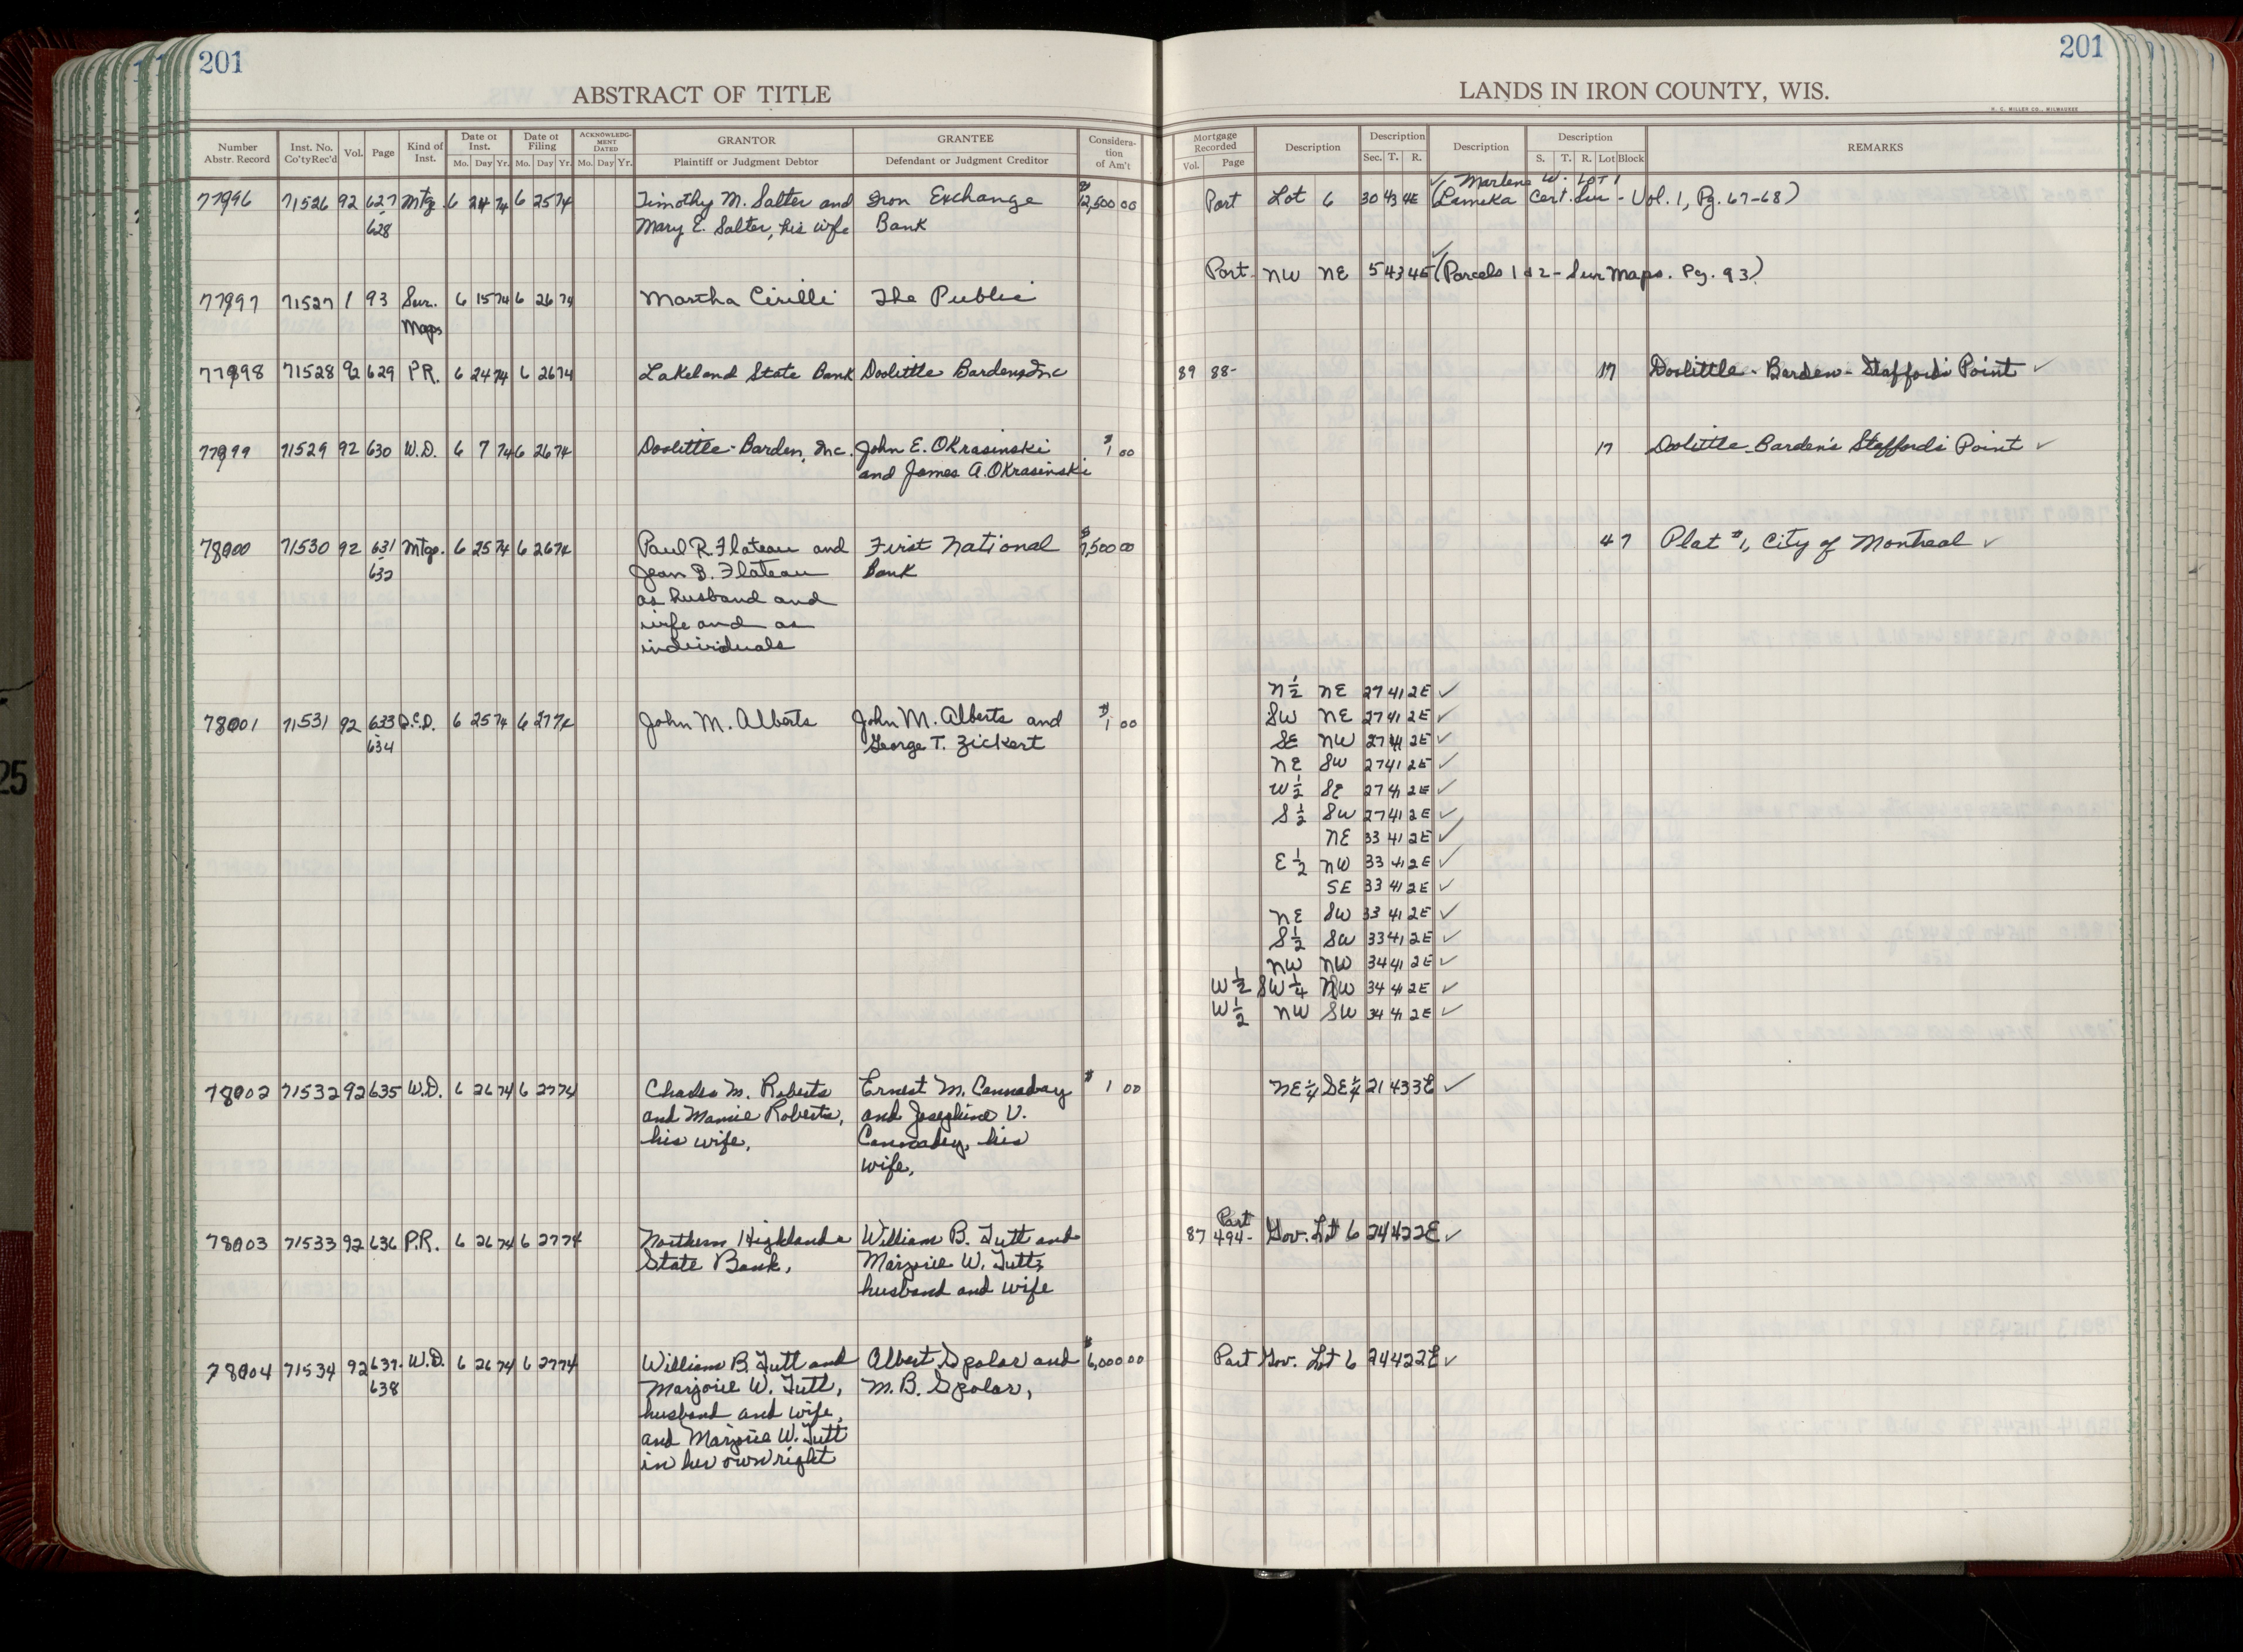 201
ABSTRACT OF TITLE
Number Abstr. Record
Inst. No. Co'ty Rec'd
Vol.
Page
Kind of Inst.
Date of Inst.
Mo. Day Yr.
Date of Filing
Mo. Day Yr.
ACKNOWLEDGMENT DATED
Mo. Day Yr.
GRANTOR
Plaintiff or Judgment Debtor
GRANTEE
Defendant or Judgment Creditor
Consideration of Am't
77996 71526 92 627 Mtg. 6 24 74 6 25 74 Timothy M. Salter and Iron Exchange $12,500 00
628 Mary E. Salter, his wife Bank
77997 71527 1 93 Sur. 6 15 74 6 26 74 Martha Cirilli The Public
Maps
77998 71528 92 629 P.R. 6 24 74 6 26 74 Lakeland State Bank Doolittle Barden, Inc
77999 71529 92 630 W.D. 6 7 74 6 26 74 Doolittle-Barden, Inc. John E. OKrasinski $1 00
and James A. OKrasinski
78000 71530 92 631 Mtg. 6 25 74 6 26 74 Paul R. Flateau and First National $7,500 00
632 Jean B. Flateau Bank
as husband and
wife and as
individuals
78001 71531 92 633 Q.C.D. 6 25 74 6 27 74 John M. Alberts John M. Alberts and $1 00
634 George T. Zickert
78002 71532 92 635 W.D. 6 26 74 6 27 74 Charles M. Roberts Ernest M. Cannaday $1 00
and Mamie Roberts, and Josephine V.
his wife, Cannaday, his
wife,
78003 71533 92 636 P.R. 6 26 74 6 27 74 Northern Highland State Bank, William B. Tutt and
Marjorie W. Tutt,
husband and wife
78004 71534 92 637- W.D. 6 26 74 6 27 74 William B. Tutt and Albert Spolar and $6,000 00
638 Marjorie W. Tutt, M. B. Spolar,
husband and wife,
and Marjorie W. Tutt
in her own right
201
LANDS IN IRON COUNTY, WIS.
H. C. MILLER CO., MILWAUKEE
Mortgage Recorded
Vol. Page
Description
Description
Sec. T. R.
Description
Description
S. T. R. Lot Block
REMARKS
Marlene W. LOT 1
Part Lot 6 30 43 4E (Lamska Cert. Sur - Vol. 1, Pg. 67-68)
Part NW NE 5 43 4E (Parcels 1 & 2 - Sur Maps. Pg. 93)
89 88- 17 Doolittle - Barden - Stafford's Point ✓
17 Doolittle-Barden's Stafford's Point ✓
4 7 Plat #1, City of Montreal ✓
N ½ NE 27 41 2E ✓
SW NE 27 41 2E ✓
SE NW 27 41 2E ✓
NE SW 27 41 2E ✓
W ½ SE 27 41 2E ✓
S ½ SW 27 41 2E ✓
NE 33 41 2E ✓
E ½ NW 33 41 2E ✓
SE 33 41 2E ✓
NE SW 33 41 2E ✓
S ½ SW 33 41 2E ✓
NW NW 34 41 2E ✓
W ½ SW ¼ NW 34 41 2E ✓
W ½ NW SW 34 41 2E ✓
NE ¼ SE ¼ 21 43 3E ✓
Part
87 494- Gov. Lot 6 24 42 2E ✓
Part Gov. Lot 6 24 42 2E ✓
25